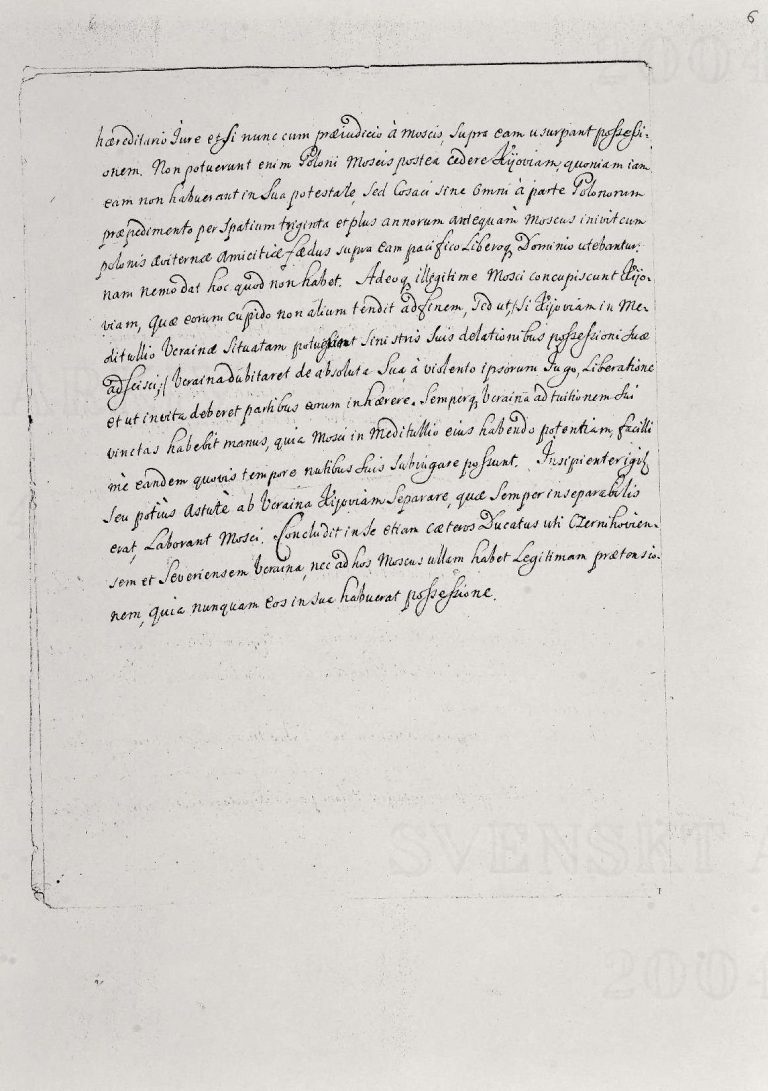 6
hæreditario Jure etsi nunc cum præiudicio à Moscis, supra eam usurpant possessi-
onem. Non potuerunt enim Poloni Moscis postea cedere Kijoviam, quoniam iam
eam non habuerant in sua potestate, sed Cosaci sine omni à parte Polonorum
præpedimento per spatium triginta et plus annorum antequam Moscus inivit cum
polonis æviternæ amicitiæ fædus supra eam pacifico Liberoq Dominio utebantur,
nam nemo dat hoc quod non habet. Adeoq illegitime Mosci concupiscunt Kijo-
viam, quæ eorum cupido non alium tendit ad finem, sed ut /: si Kijoviam in Me-
ditullio Ucrainæ situatam potuerint sinistris suis delationibus possessioni suæ
adscisci :/ Ucraina dubitaret de absoluta sua à violento ipsorum Jugo, Liberatione
et ut invita deberet partibus eorum inhærere. Semperq Ucraina ad tuitionem sui
vinctas habebit manus, quia Mosci in Meditullio eius habendo potentiam, facilli
mè eandem quovis tempore nutibus suis subiugare possunt. Insipienter igit
seu potiùs astutè ab Ucraina Kijoviam separare, quæ semper inseparabilis
erat, Laborant Mosci. Concludit in se etiam cæteros Ducatus uti Czernihovien-
sem et Severiensem Ucraina, nec ad hos Moscus ullam habet Legitimam prætensio-
nem, quia nunquam eos in sua habuerat possessione.
SVENSKT A
2004